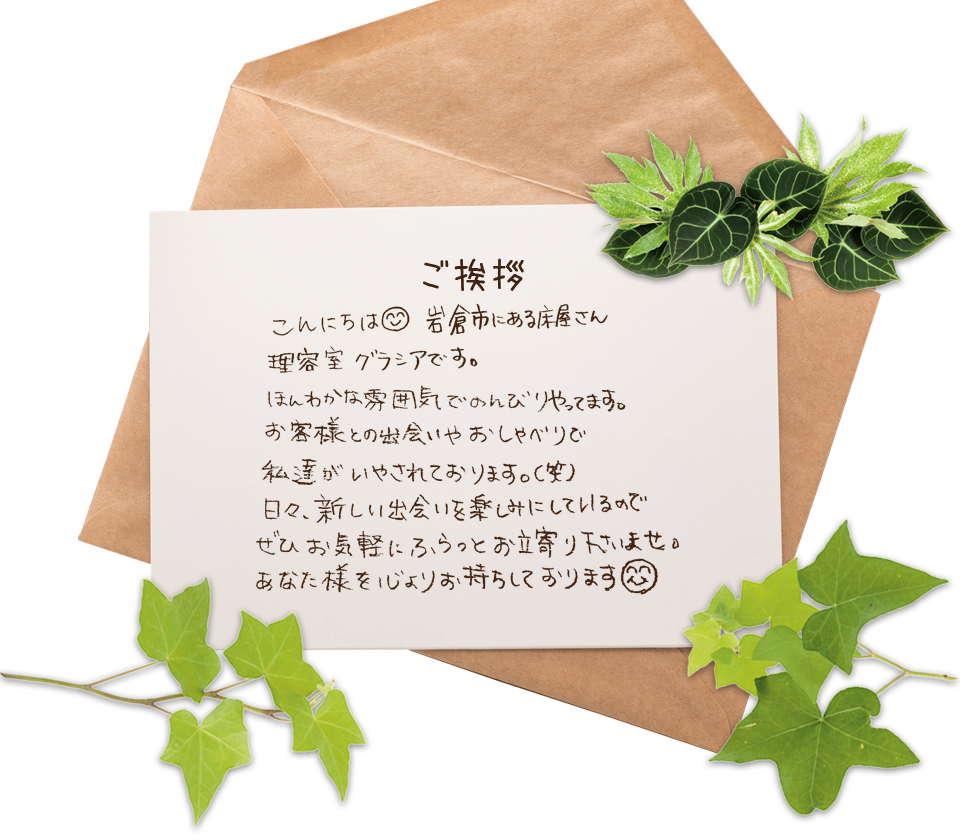 ご挨拶
こんにちは☺ 岩倉市にある床屋さん
理容室 グラシアです。
ほんわかな雰囲気でのんびりやってます。
お客様との出会いや おしゃべりで
私達が いやされております。(笑)
日々、新しい出会いを楽しみにしているので
ぜひ お気軽に ふらっと お立寄り下さいませ。
あなた様を 心よりお持ちして おります☺